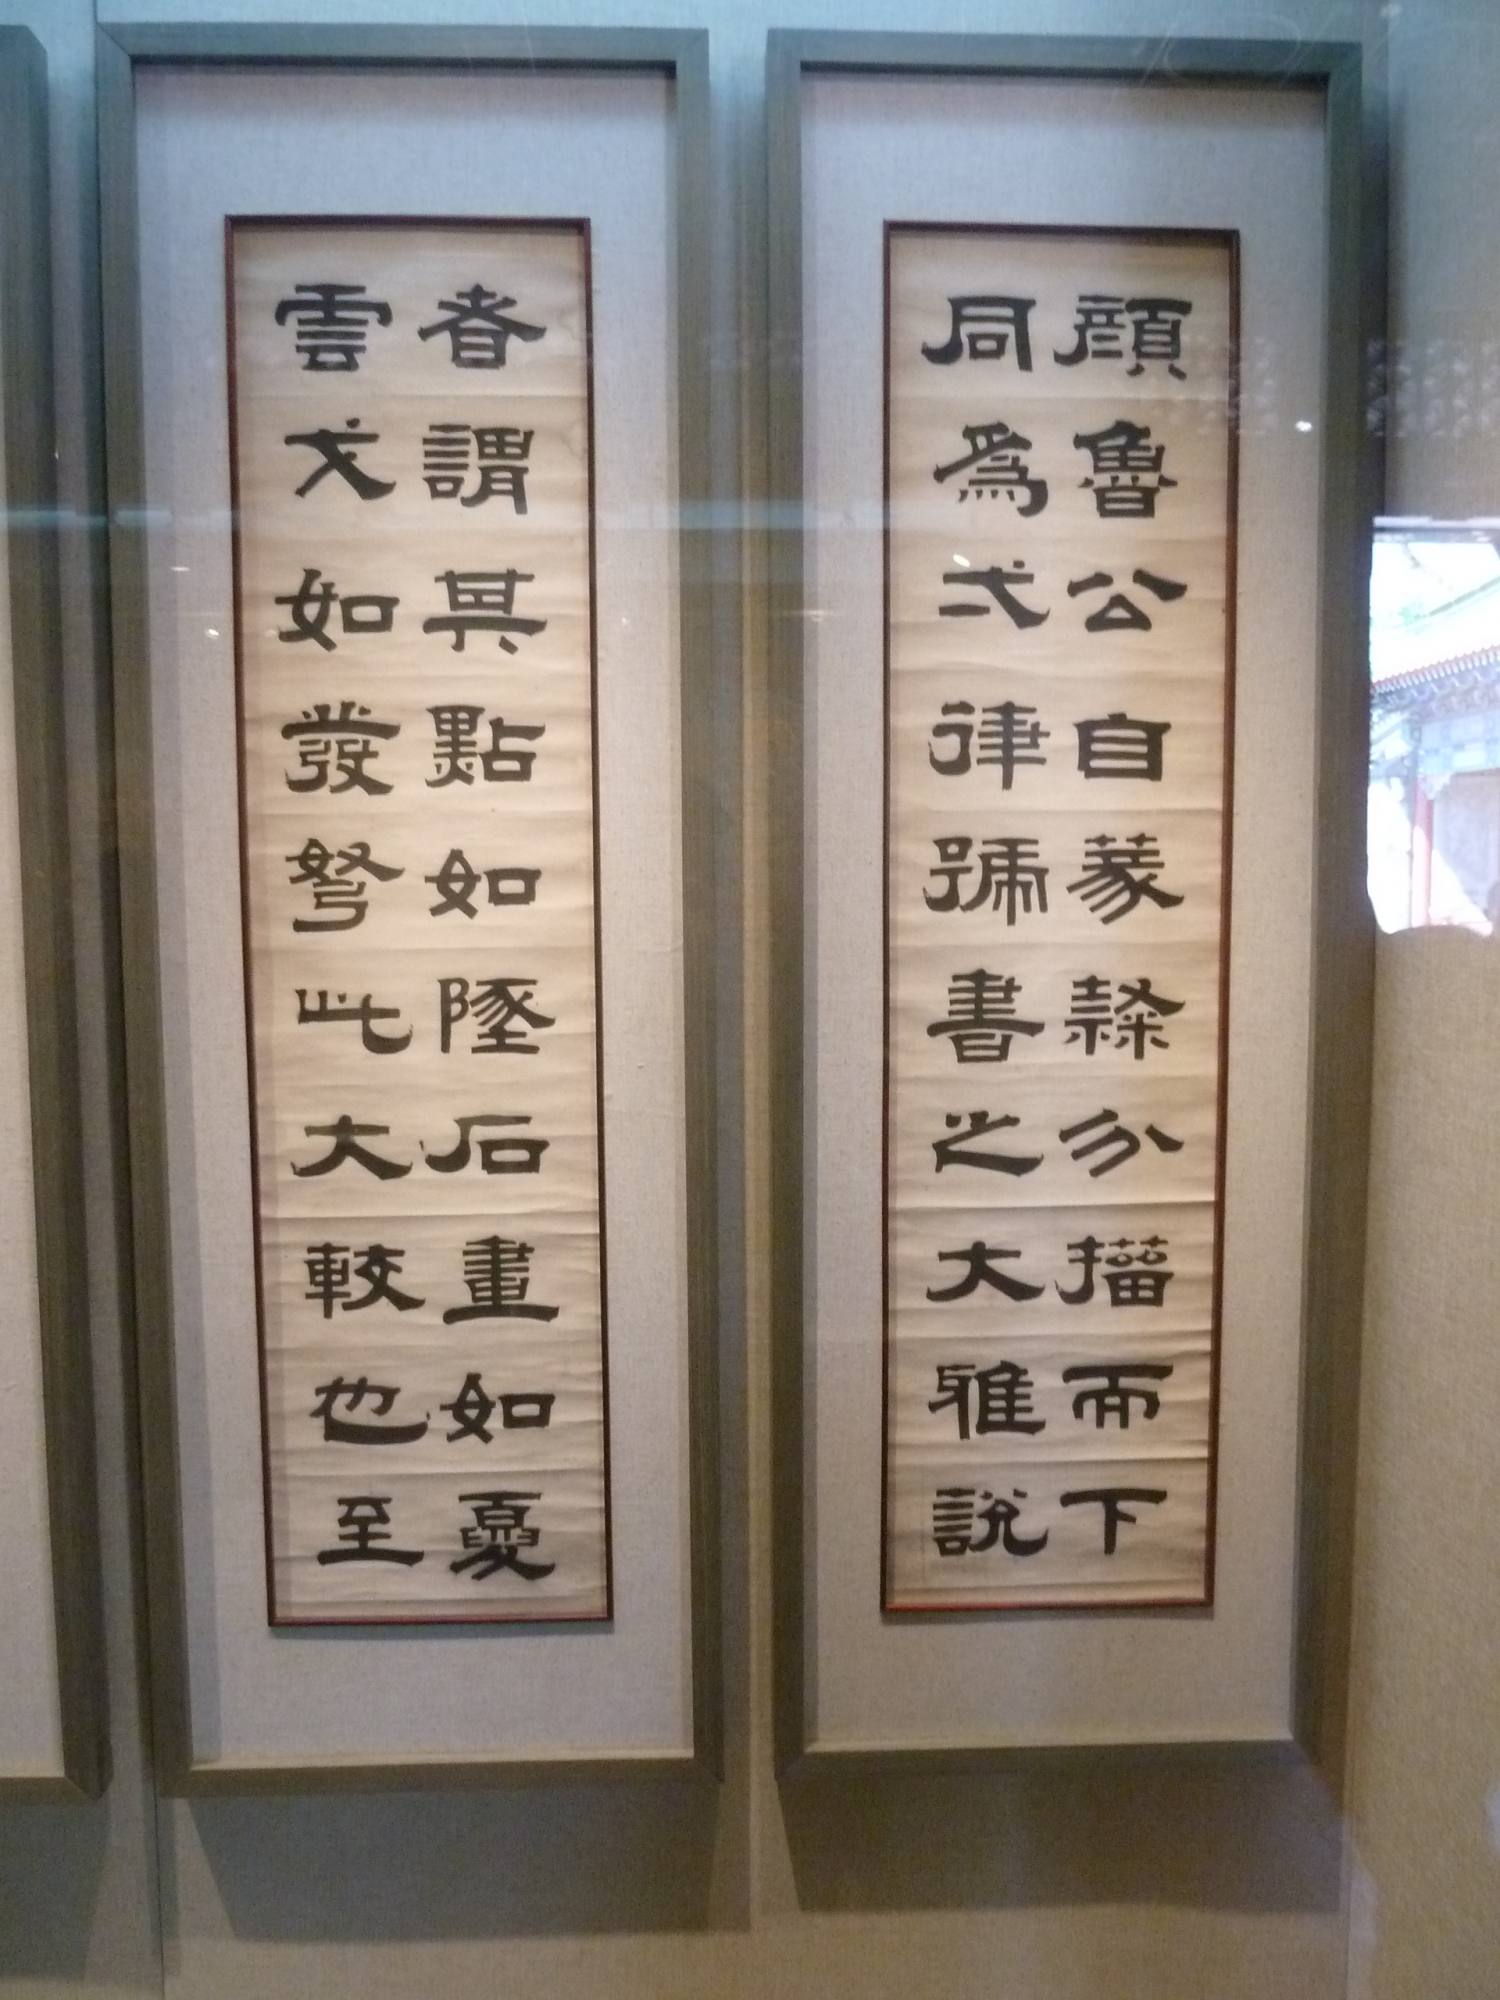 顏魯公自篆隸分籀而下
同爲弌律號書之大雅說
者謂其點如墜石畫如夏
雲戈如發弩此大較也至